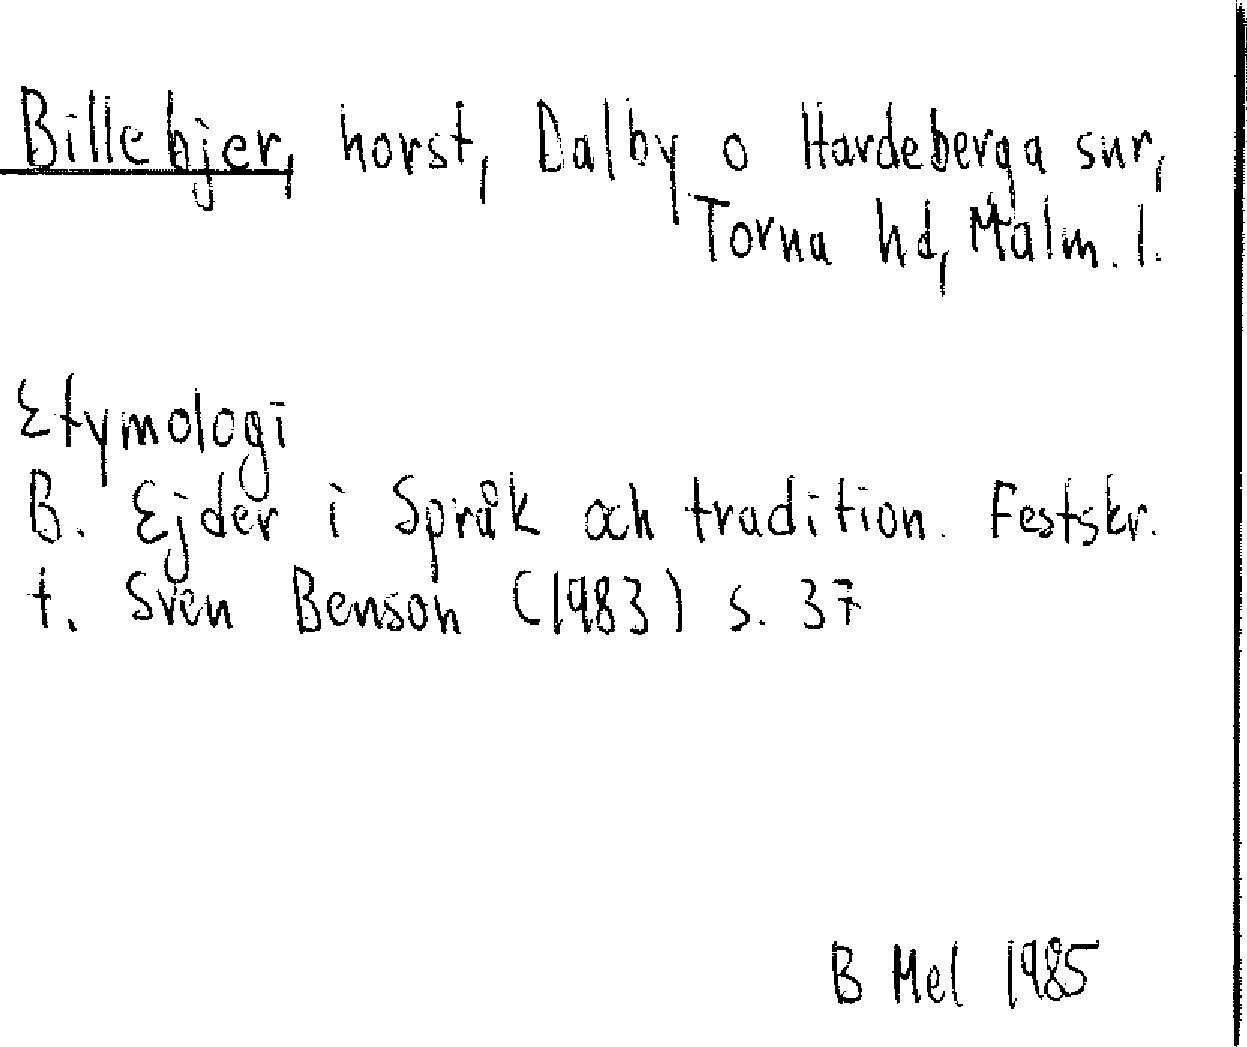 Billebjer, horst, Dalby o Hardeberga snr,
Torna hd, Malm. l.
Etymologi
B. Ejder i Språk och tradition. Festskr.
t. Sven Benson (1983) s. 37
B Mel 1985